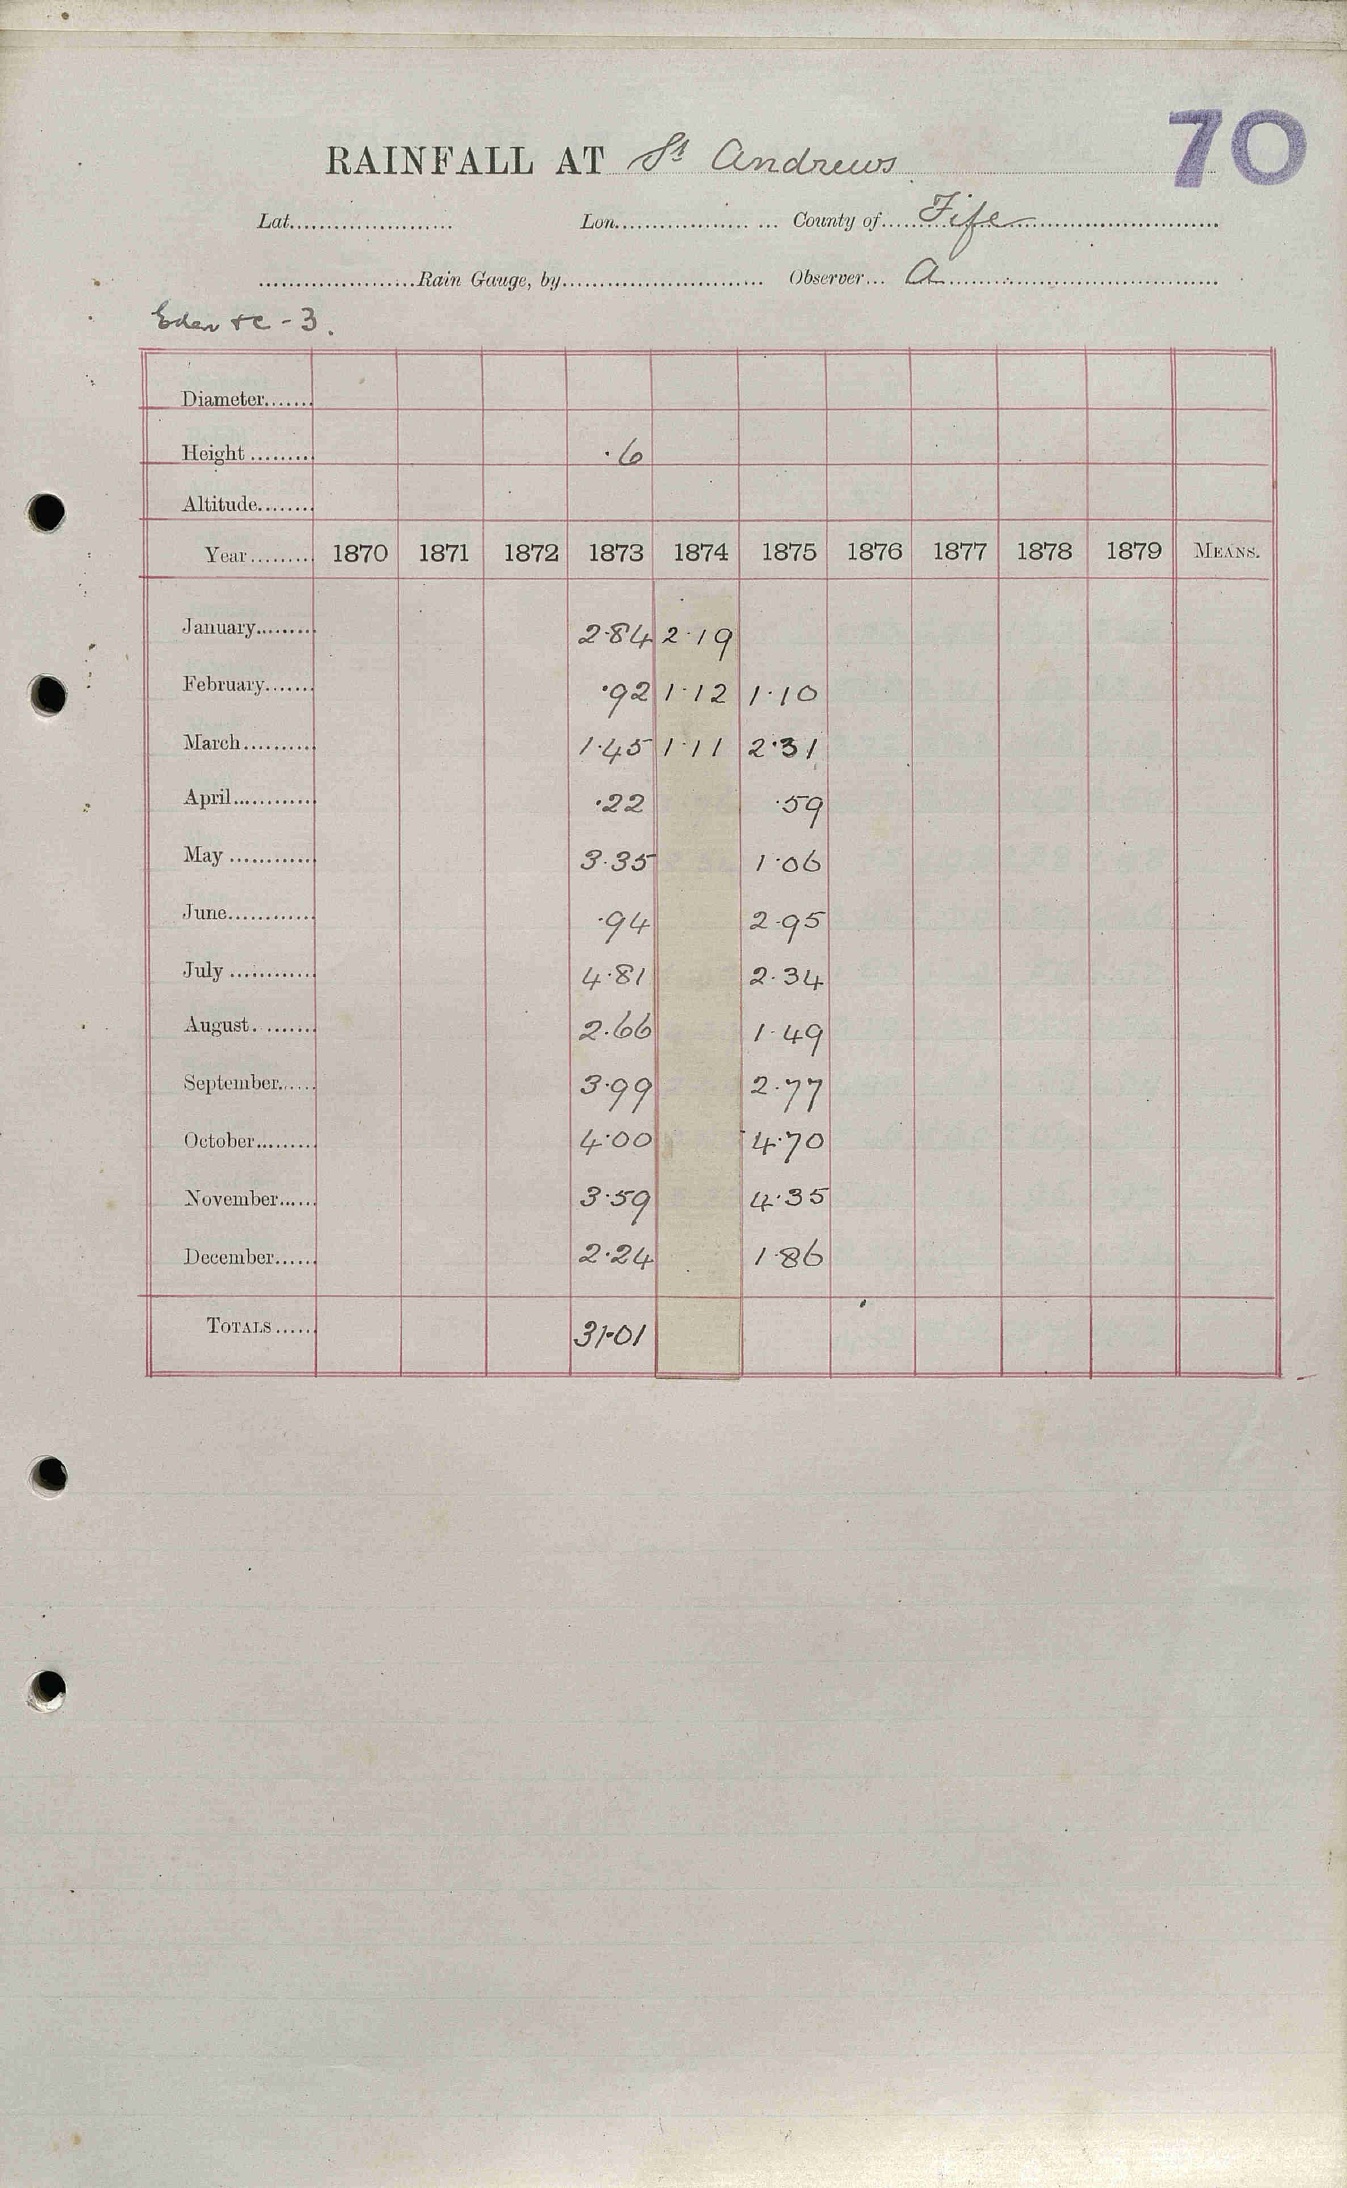 70
RAINFALL AT St Andrews
Lat. Lon. County of Fife
Rain Gauge, by Observer A
Eden &c - 3.
Diameter
Height ·6
Altitude
Year 1870 1871 1872 1873 1874 1875 1876 1877 1878 1879 MEANS.
January 2·84 2·19
February ·92 1·12 1·10
March 1·45 1·11 2·31
April ·22 ·59
May 3·35 1·06
June ·94 2·95
July 4·81 2·34
August 2·66 1·49
September 3·99 2·77
October 4·00 4·70
November 3·59 4·35
December 2·24 1·86
TOTALS 31·01